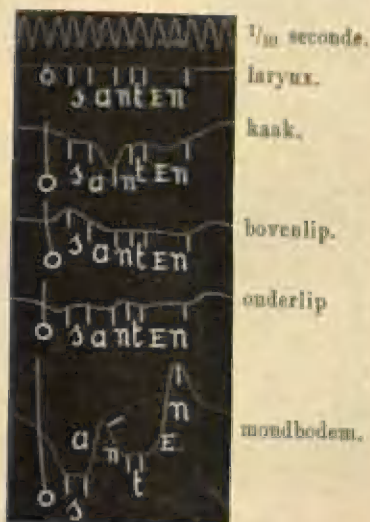 1/10 seconde.
o larynx.
santEn
kaak.
o santEn
bovenlip.
o santEn
onderlip
o santEn
mondbodem.
o santEn